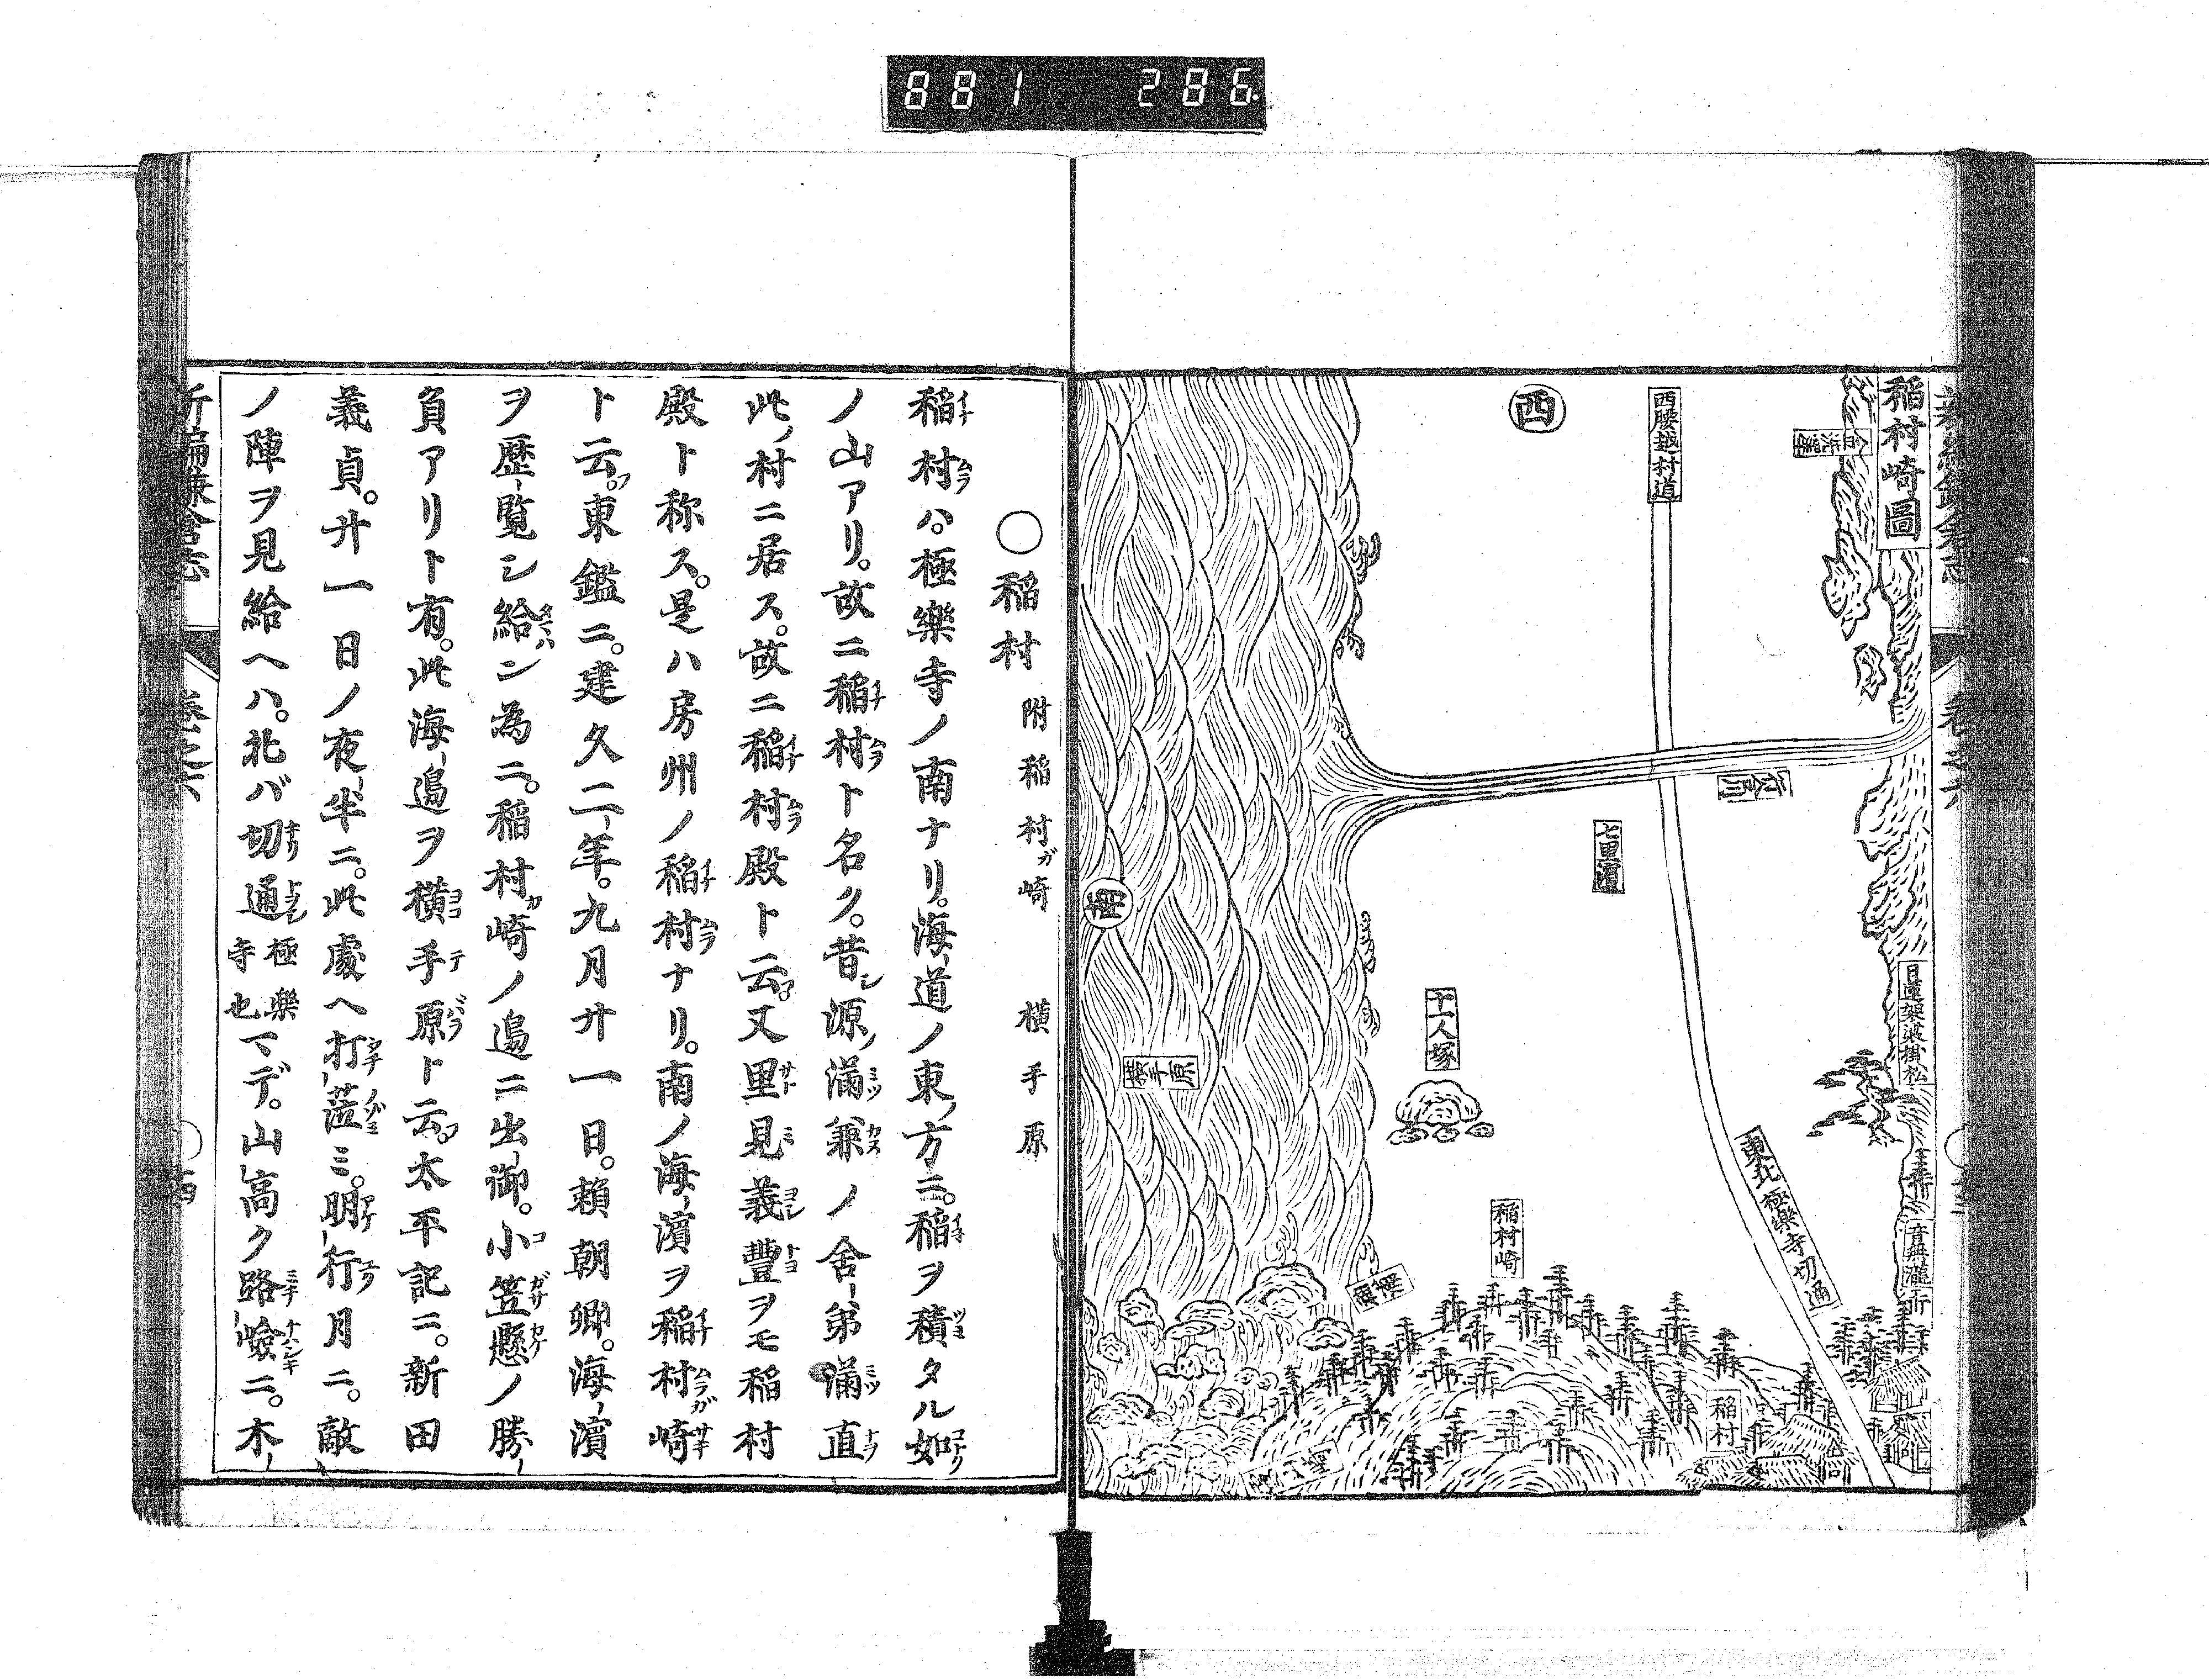 881 286
稲村崎圖
西
西腰越村道
七里濱
十一人塚
日蓮袈裟掛松
音無瀧所
東北極樂寺切通
稲村崎
稲村
横手原
南
○稲村 附稲村ガ崎 横手原
稲村ハ。極樂寺ノ南ナリ。海道ノ東ノ方ニ。稲ヲ積タル如
ノ山アリ。故ニ稲村ト名ク。昔シ源ノ滿兼ノ舍弟滿直
此ノ村ニ居ス。故ニ稲村殿ト云フ。又里見義豐ヲモ稲村
殿ト称ス。是ハ房州ノ稲村ナリ。南ノ海濵ヲ稲村崎
ト云フ。東鑑ニ。建久二年。九月廿一日。頼朝卿。海濵
ヲ歷覽シ給ン為ニ。稲村崎ノ邉ニ出御。小笠懸ノ勝
負アリト有。此海邉ヲ横手原ト云フ。太平記ニ。新田
義貞。廿一日ノ夜半ニ。此處ヘ打莅ミ。明行月ニ。敵
ノ陣ヲ見給ヘハ。北バ切通極樂寺也マデ。山高ク路嶮ニ。木
新編鎌倉志 卷之六